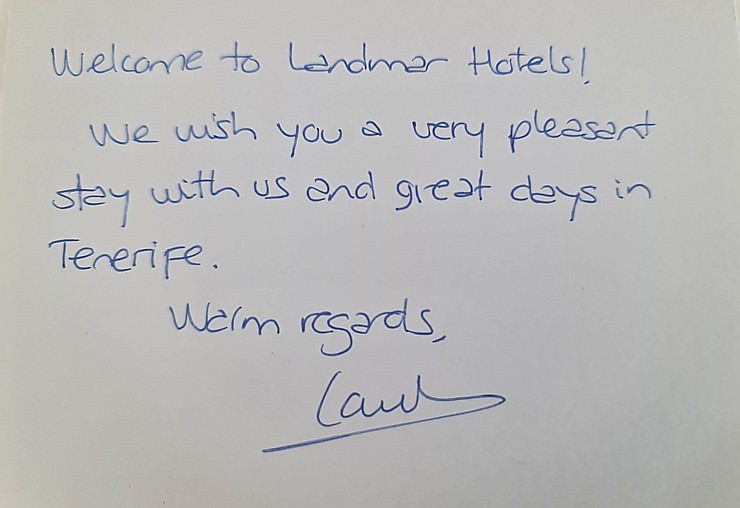 Welcome to Landmar Hotels!
We wish you a very pleasant
stay with us and great days in
Tenerife.
Warm regards,